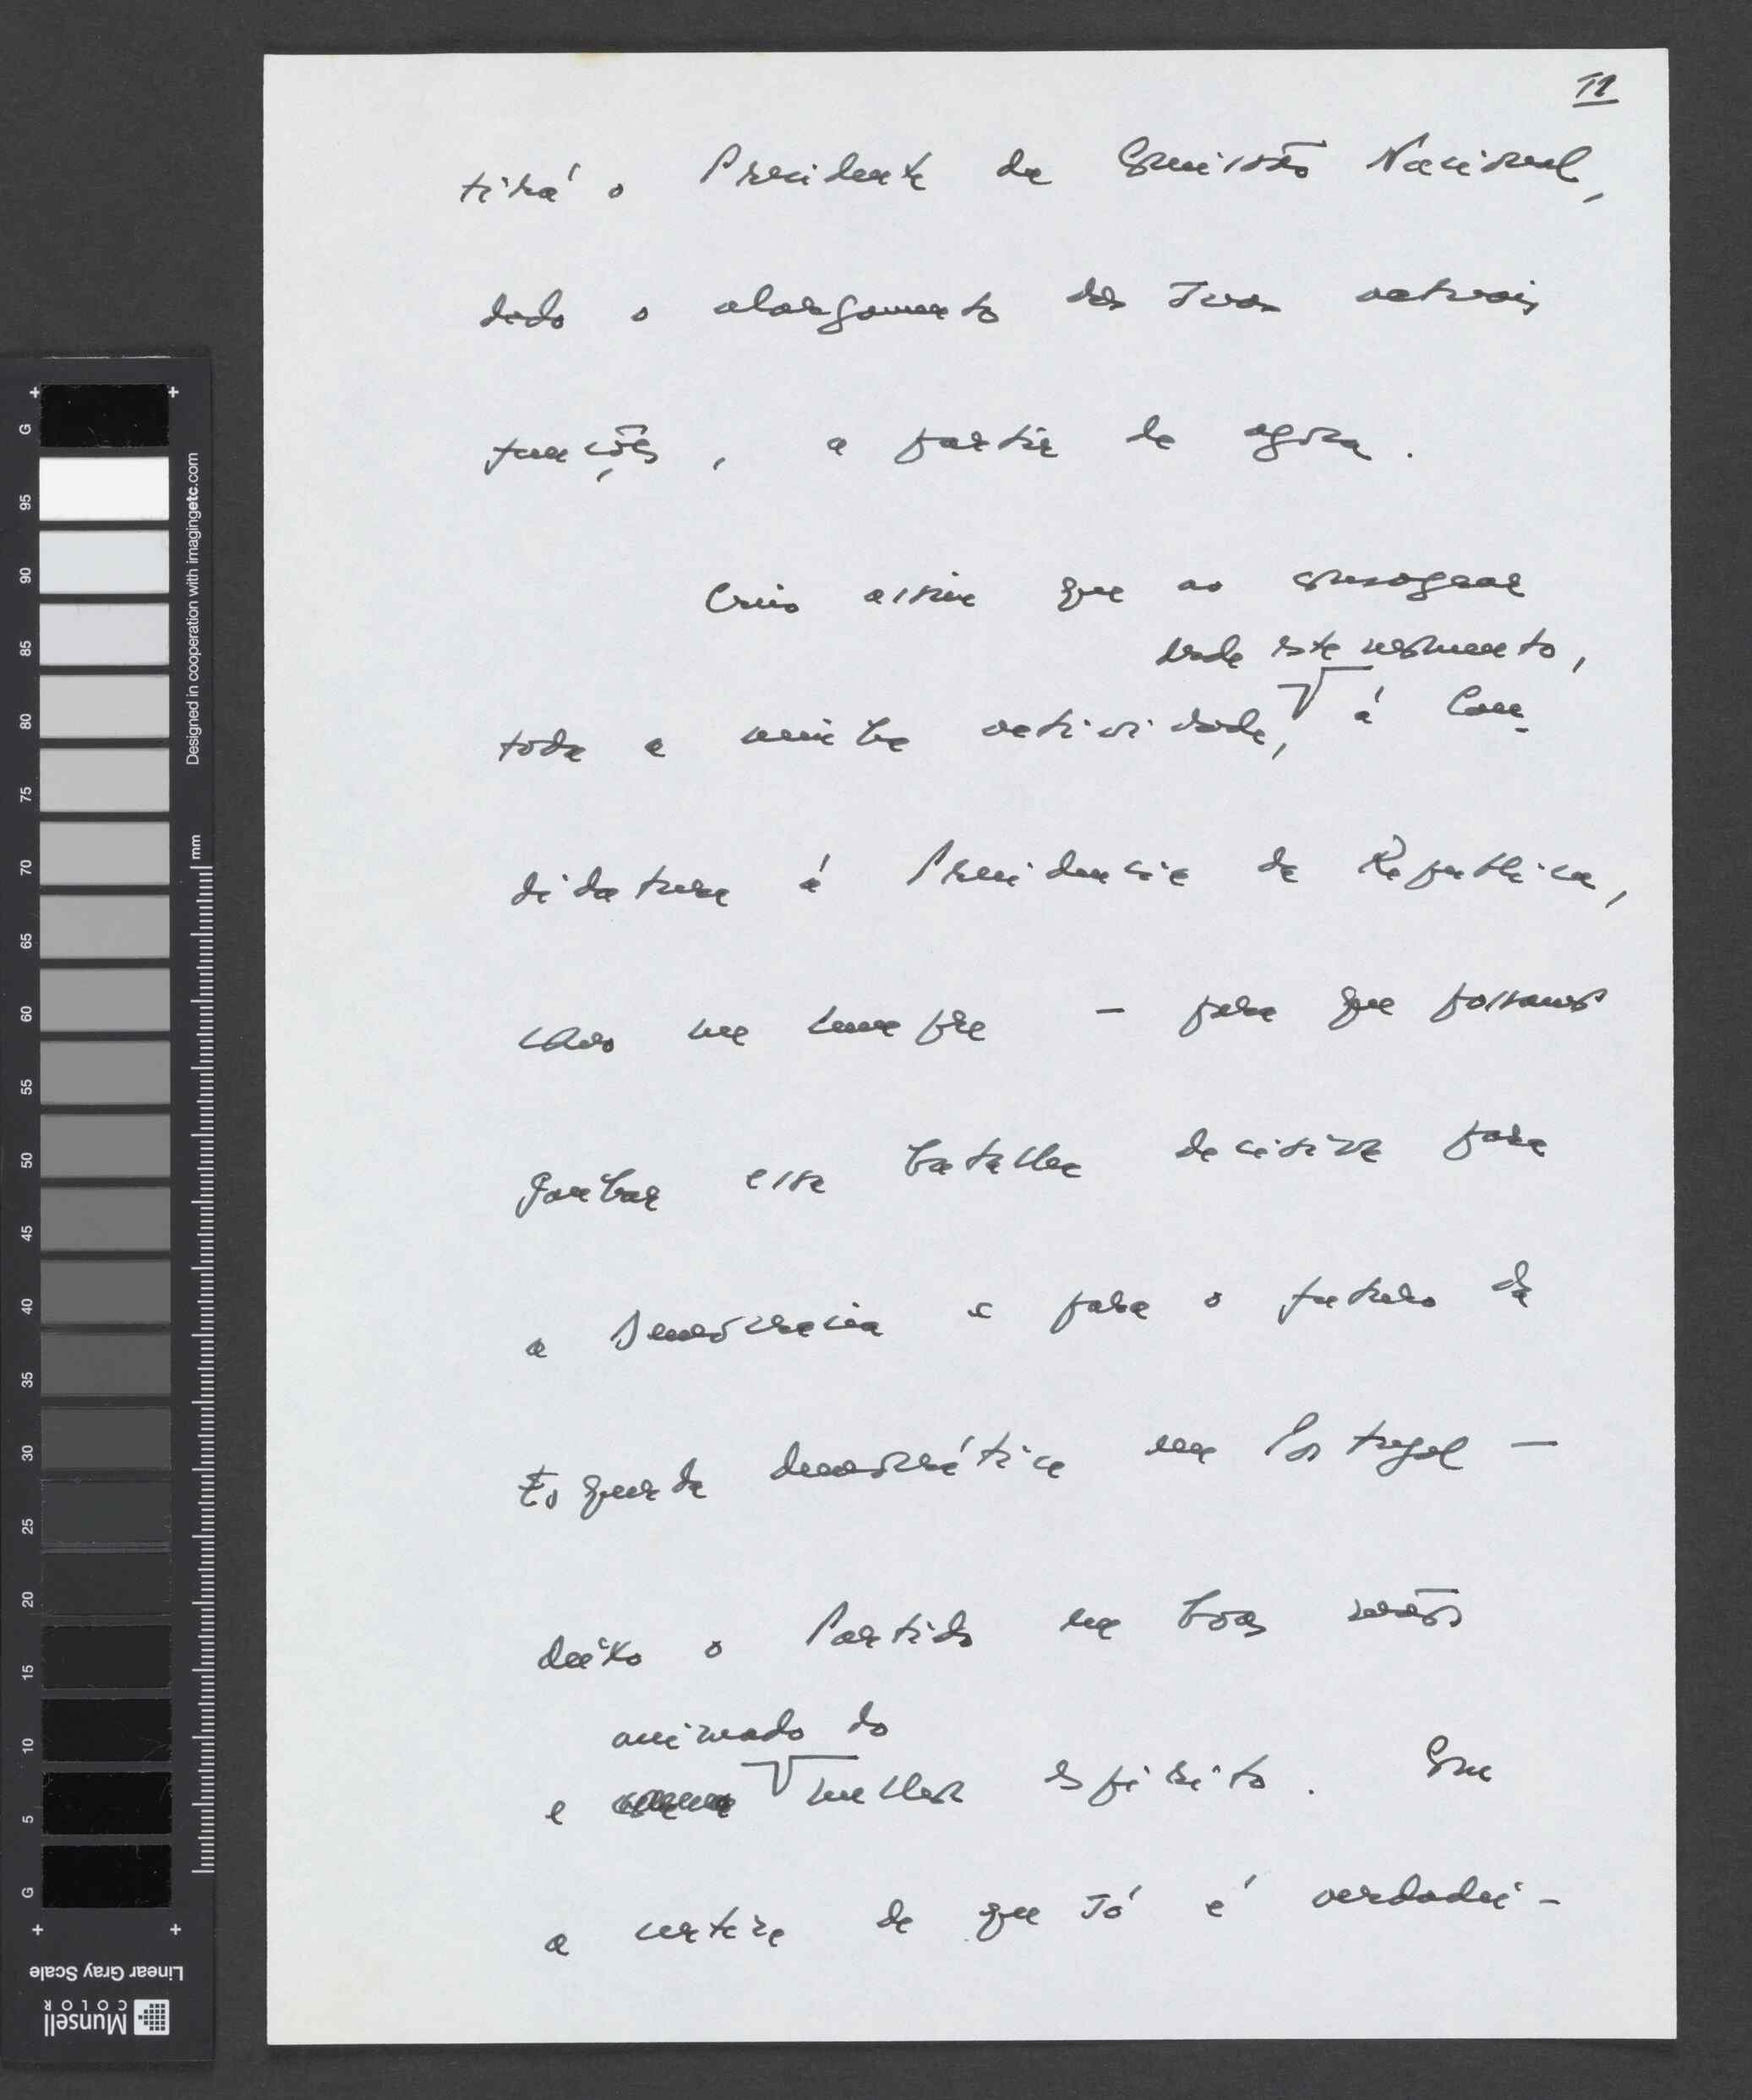 11
tirá o Presidente da Comissão Nacional,
dado o alargamento das suas actuais
funções, a partir de agora.
Creio assim que ao consagrar
desde este momento,
toda a minha actividade, à Can-
didatura à Presidencia da Republica,
como me cumpre - para que possamos
ganhar essa batalha decisiva para
a Democracia e para o futuro da
Esquerda democrática em Portugal -
deixo o Partido em boas mãos
animado do
e melhor espirito. Com
a certeza de que só é verdadei-
G
95
90
85
80
75
70
65
60
55
50
45
40
35
30
25
20
15
10
5
G
Designed in cooperation with imagingetc.com
mm
Linear Gray Scale
Munsell
COLOR